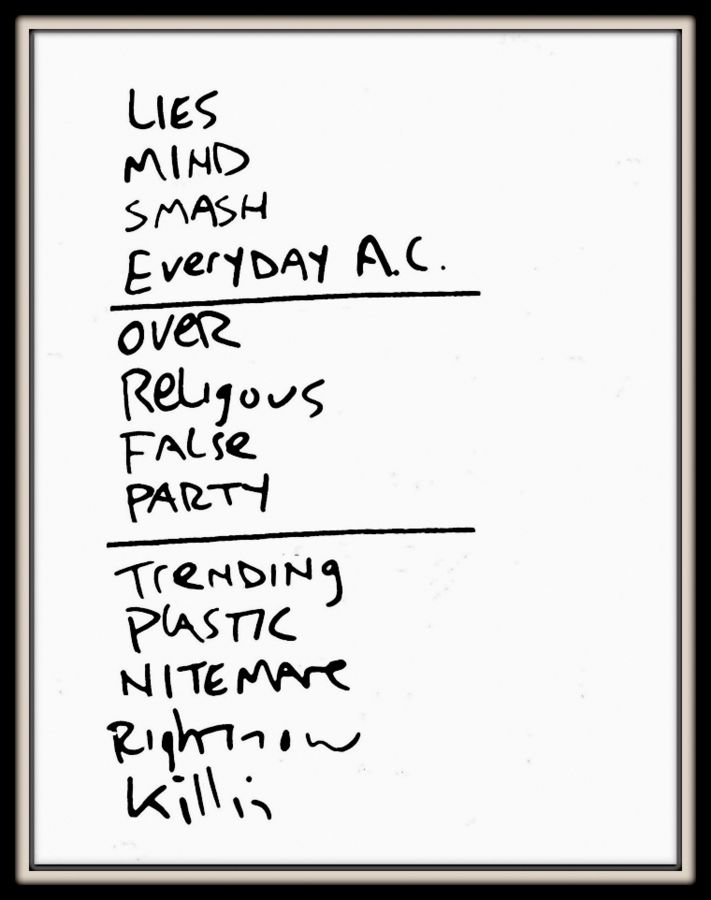 LIES
MIND
SMASH
EVERYDAY A.C.
OVER
RELIGOUS
FALSE
PARTY
TRENDING
PLASTIC
NITEMARE
RIGHT NOW
Killin